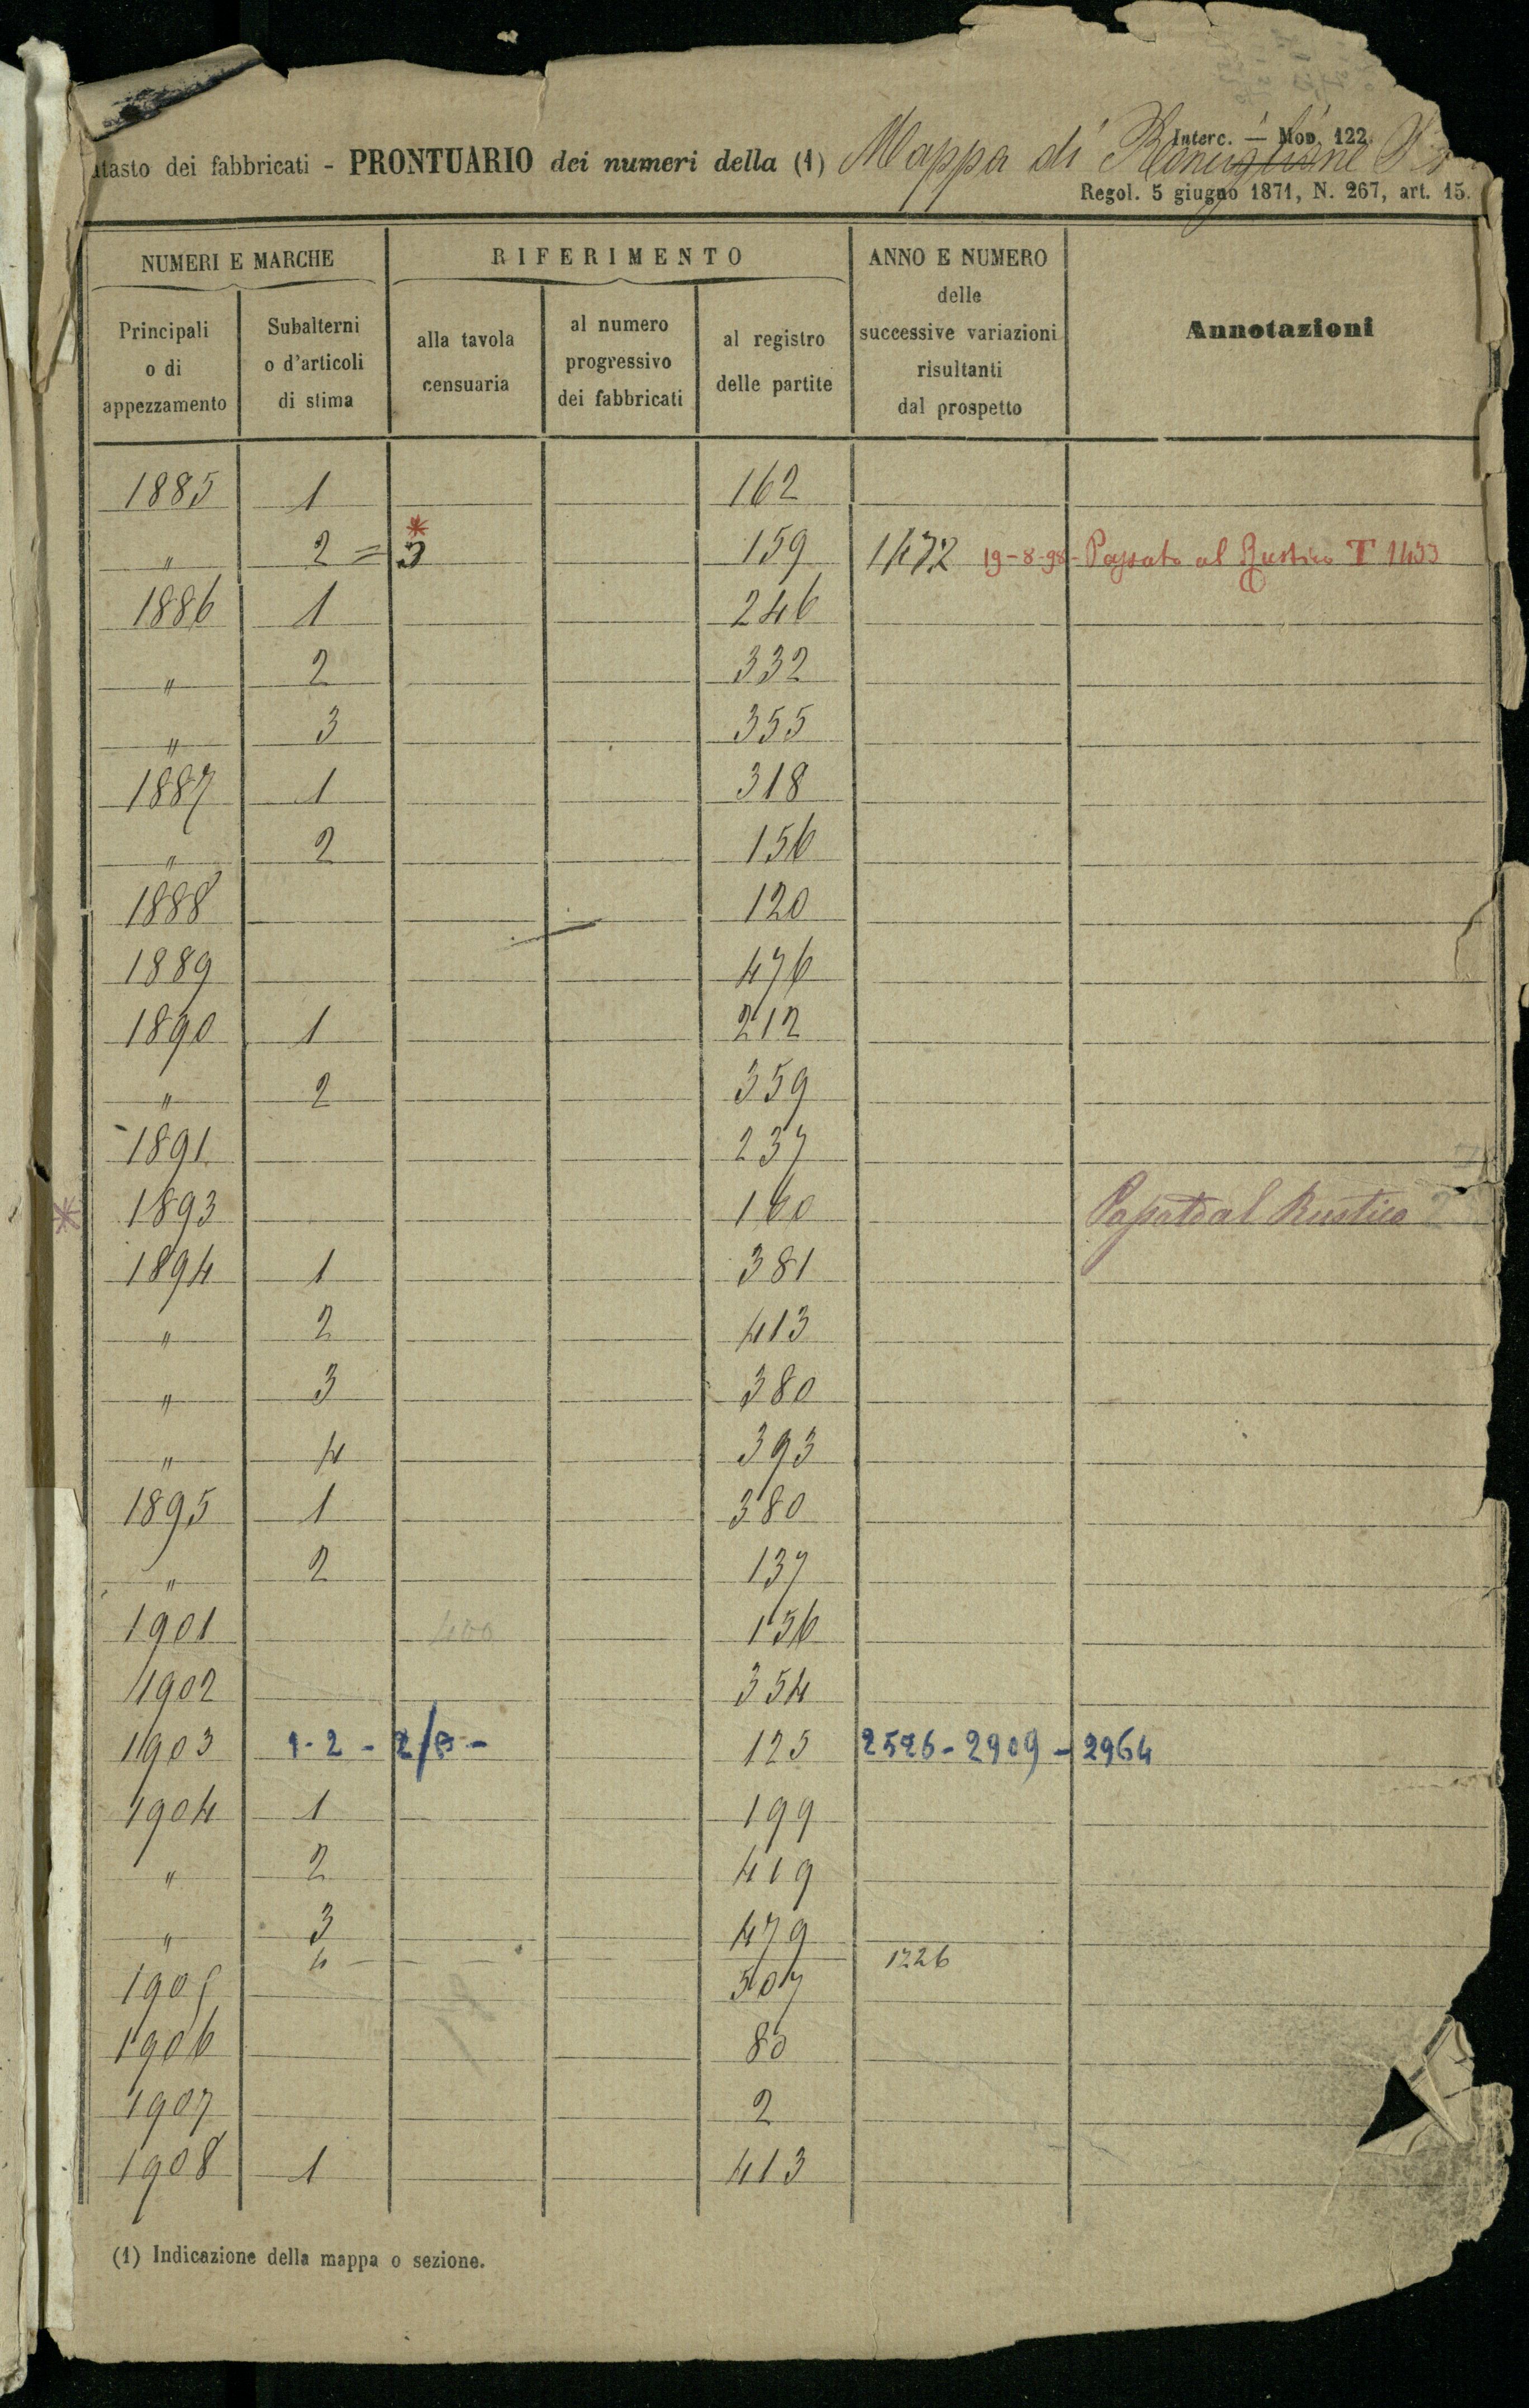 Interc. — Mod. 122
tasto dei fabbricati - PRONTUARIO dei numeri della (1) Mappa di Ronciglione
Regol. 5 giugno 1871, N. 267, art. 15.
NUMERI E MARCHE RIFERIMENTO ANNO E NUMERO delle successive variazioni risultanti dal prospetto Annotazioni
Principali o di appezzamento Subalterni o d'articoli di stima alla tavola censuaria al numero progressivo dei fabbricati al registro delle partite
1885 1 162
" 2 = 3 * 159 1472 19-8-98 - Passato al Rustico T 1453
1886 1 246
" 2 332
" 3 355
1887 1 318
" 2 156
1888 120
1889 476
1890 1 212
" 2 359
1891 237
* 1893 160 Passato al Rustico
1894 1 381
" 2 413
" 3 380
" 4 393
1895 1 380
" 2 137
1901 400 156
1902 354
1903 1-2 - 2/3 - 125 2526 - 2909 - 2964
1904 1 199
" 2 419
" 3 479
4 — 1226
1905 507
1906 80
1907 2
1908 1 413
(1) Indicazione della mappa o sezione.